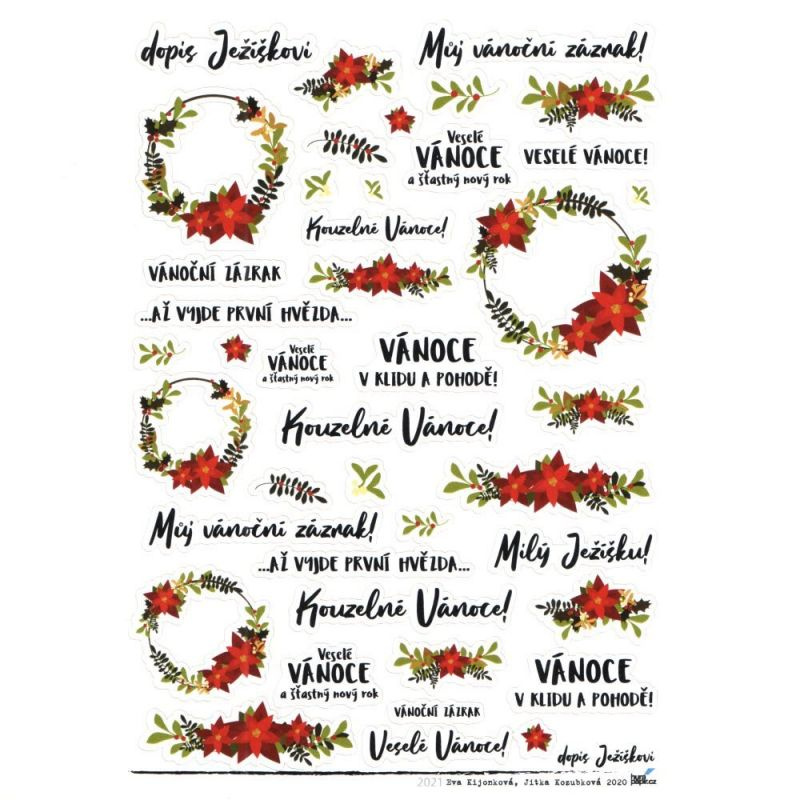 dopis Ježíškovi
Můj vánoční zázrak!
Veselé
VÁNOCE
a šťastný nový rok
VESELÉ VÁNOCE!
Kouzelné Vánoce!
VÁNOČNÍ ZÁZRAK
...AŽ VYJDE PRVNÍ HVĚZDA...
Veselé
VÁNOCE
a šťastný nový rok
VÁNOCE
V KLIDU A POHODĚ!
Kouzelné Vánoce!
Můj vánoční zázrak!
Milý Ježíšku!
...AŽ VYJDE PRVNÍ HVĚZDA...
Kouzelné Vánoce!
Veselé
VÁNOCE
a šťastný nový rok
VÁNOCE
V KLIDU A POHODĚ!
VÁNOČNÍ ZÁZRAK
Veselé Vánoce!
dopis Ježíškovi
2021 Eva Kijonková, Jitka Kozubková 2020